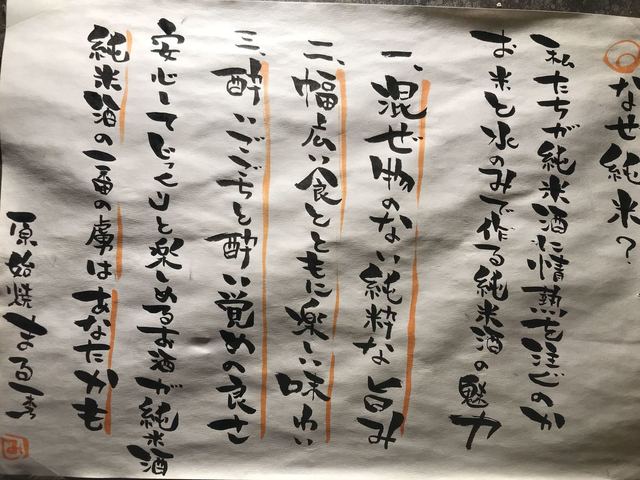 なぜ純米？
私たちが純米酒に情熱を注ぐのか
お米と水のみで作る純米酒の魅力
一、混ぜ物のない純粋な旨み
二、幅広い食とともに楽しい味わい
三、酔いごごちと酔い覚めの良さ
安心してじっくりと楽しめるお酒が純米酒
純米酒の一番の虜はあなたかも
原始焼まる一